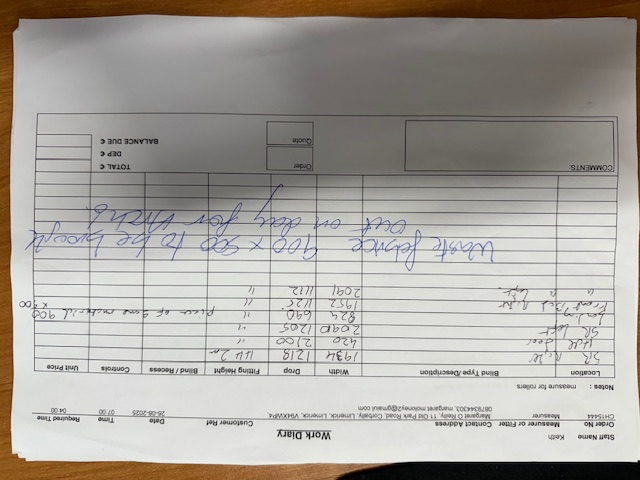 Work Diary
Staff Name Keith
Order No Measurer or Fitter Contact Address Customer Ref Date Time Required Time
CH15444 Measurer Margaret O Reilly, 11 Old Park Road, Corbally, Limerick, Limerick, V94XVP4 26-08-2025 07:00 04:00
0879344303, margaret.moloney2@gmail.com
Notes : measure for rollers
Location Blind Type/Description Width Drop Fitting Height Blind / Recess Controls Unit Price
SR Right 1934 1218 HH 2m
Hall door 420 2100
SR Left 2090 1205 "
Landing 824 690 " piece of same material 900 x 500
Front Bed Right 1952 1125 "
" " Left 2091 1172 "
Waste fabrice 900 x 500 to be brought
out on day for
COMMENTS:
Order
Quote
TOTAL €
DEP €
BALANCE DUE €